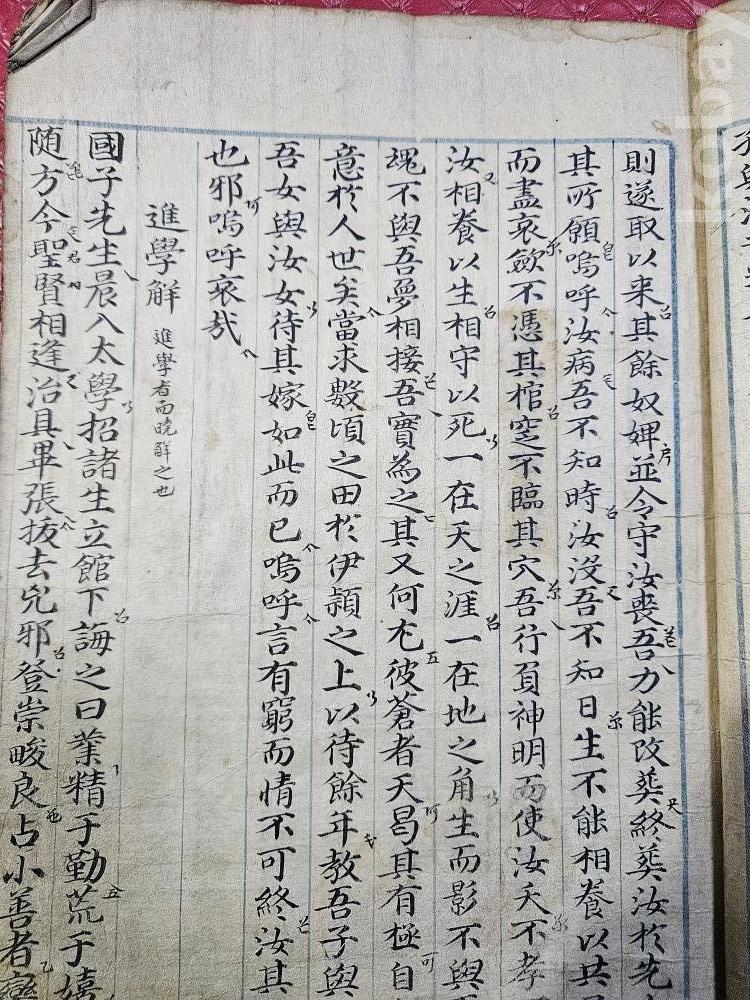 則遂取以来其餘奴婢並令守汝喪吾力能改葬終葬汝於先
其所願嗚呼汝病吾不知時汝沒吾不知日生不能相養以共
而盡哀斂不憑其棺窆不臨其穴吾行負神明而使汝夭不孝
汝相養以生相守以死一在天之涯一在地之角生而影不與
魂不與吾夢相接吾實為之其又何尤彼蒼者天曷其有極自
意於人世矣當求數頃之田於伊潁之上以待餘年教吾子與
吾女與汝女待其嫁如此而已嗚呼言有窮而情不可終汝其
也邪嗚呼哀哉
進學解 進學者而曉解之也
國子先生晨入太學招諸生立館下誨之曰業精于勤荒于嬉
随方今聖賢相逢治具畢張拔去兇邪登崇畯良占小善者
kobay